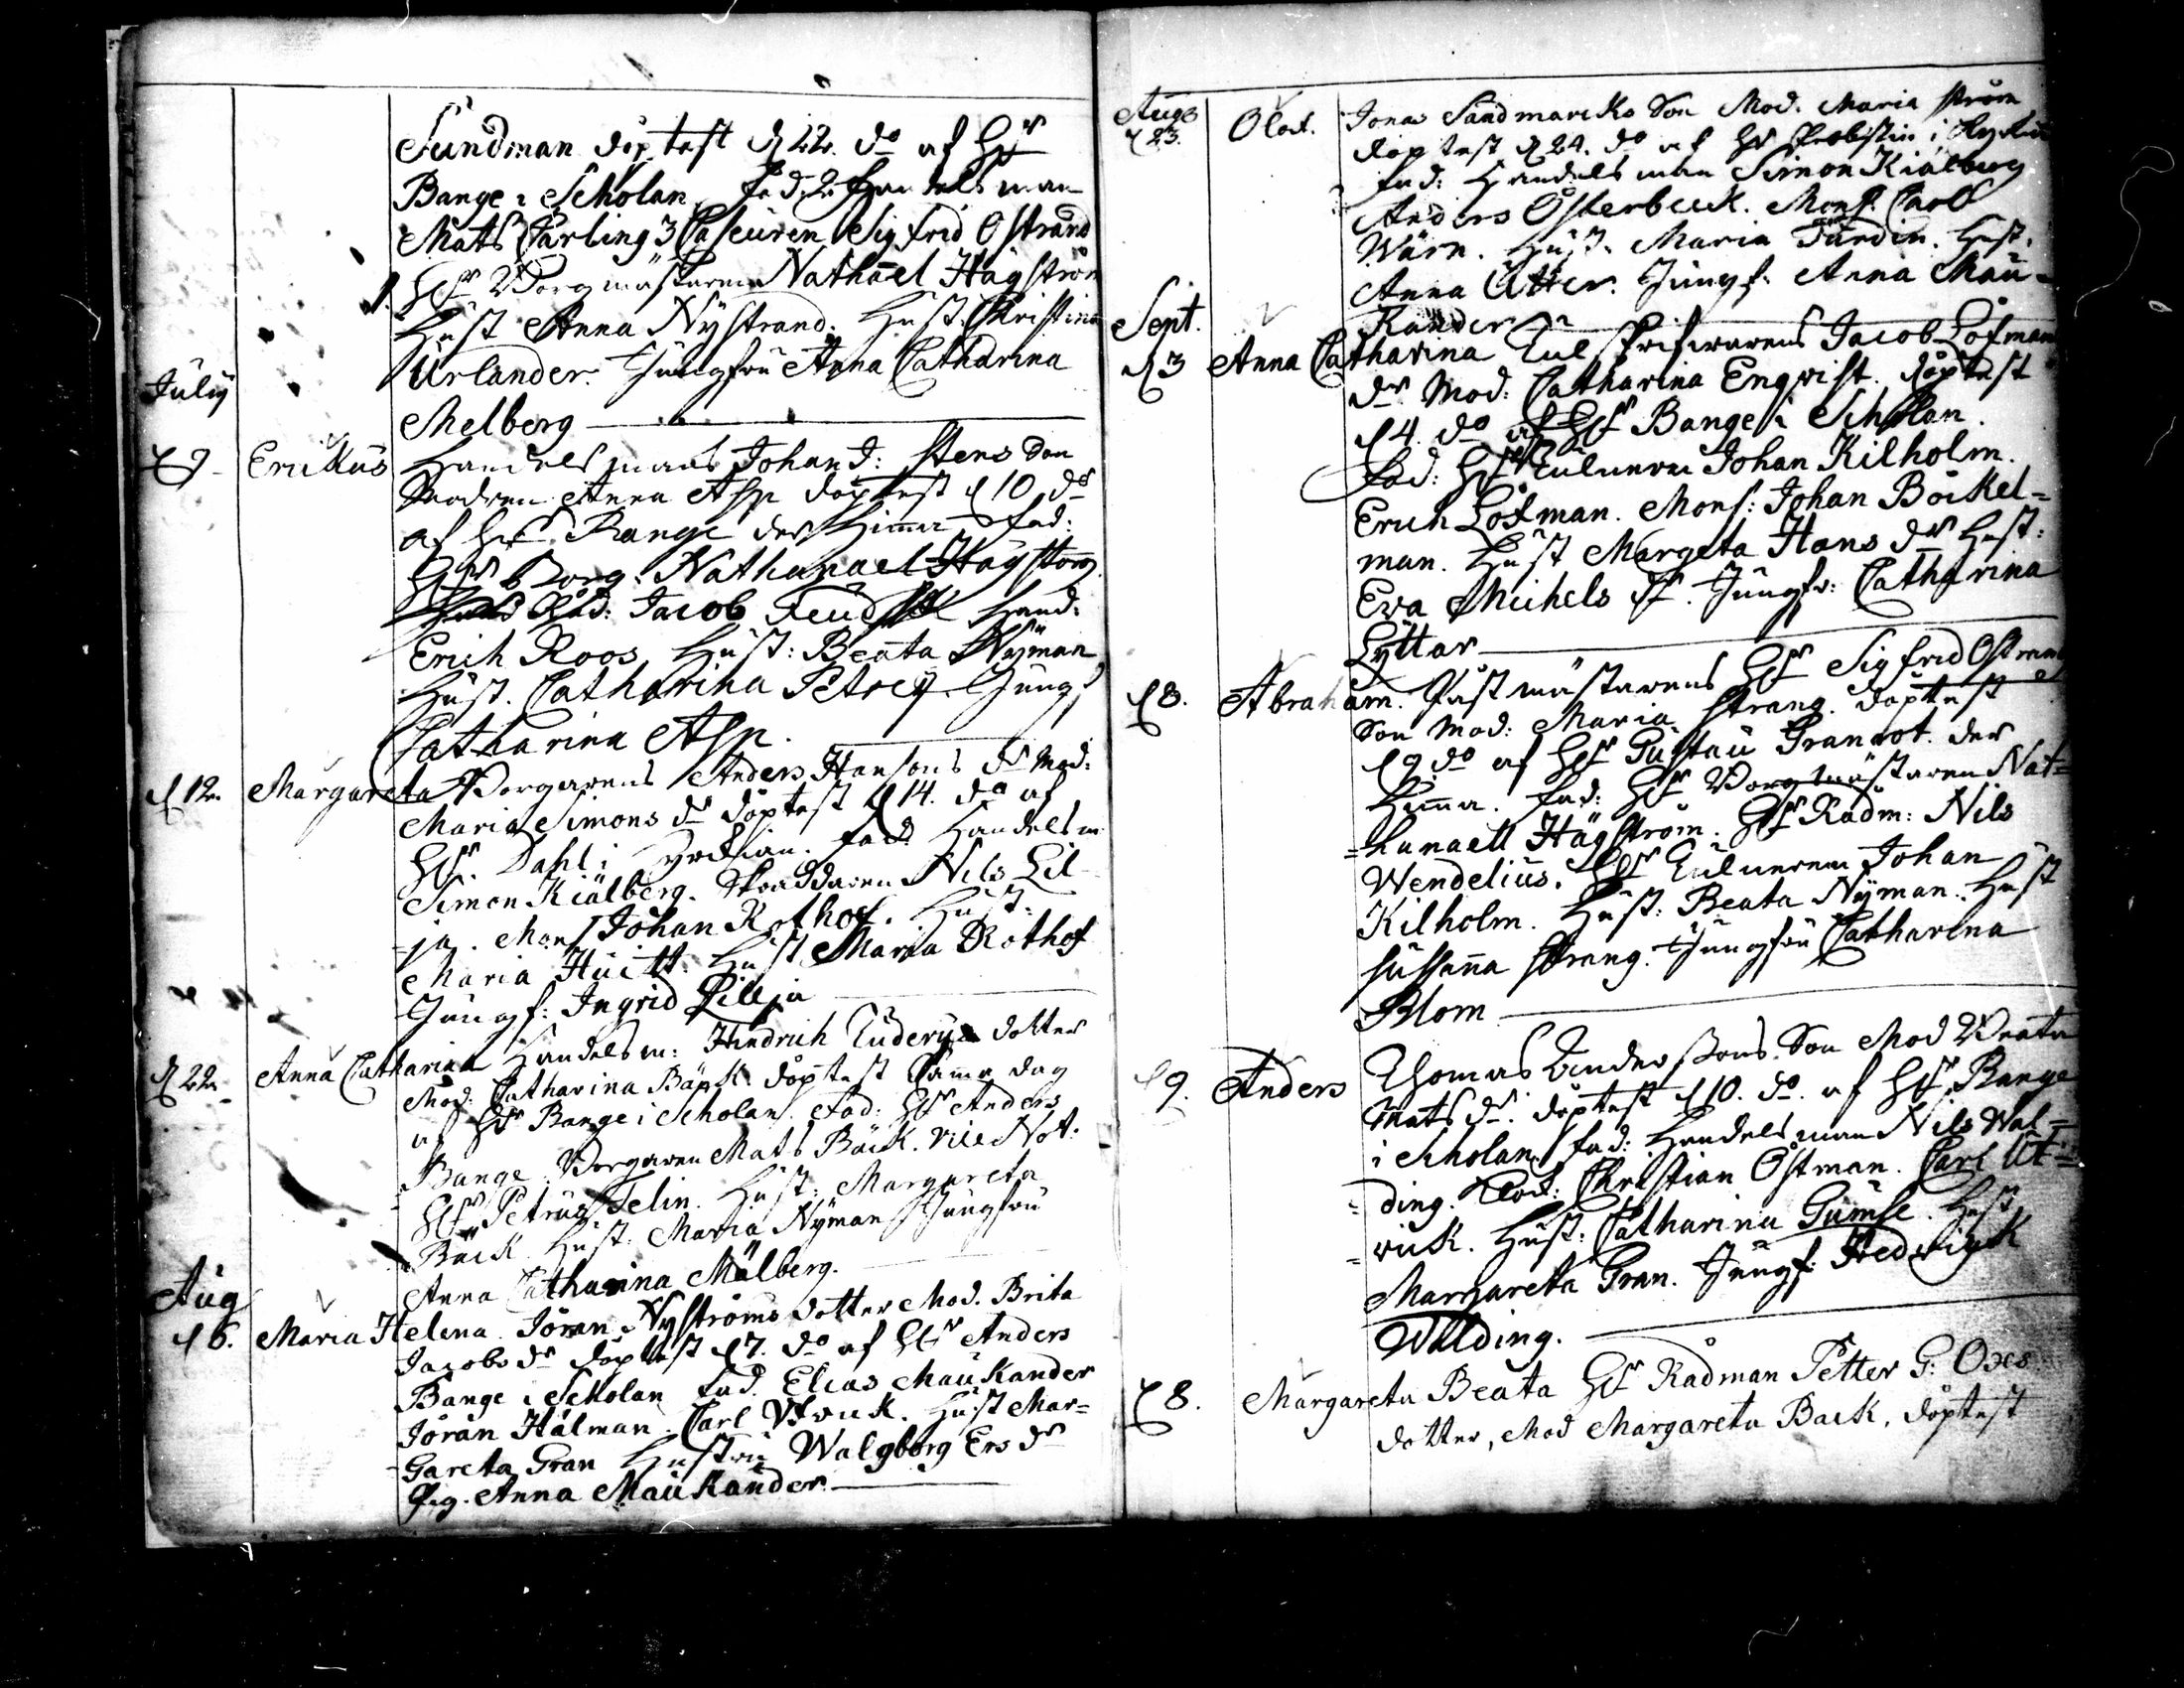 Sundman döptest d 22. do af Hr
Bange i Scholan. Fad: 2 Handelsman
Mats Carling 3 Casseuren Sigfrid Ostrand
1. Hr Borgmästaren Nathanael Hägström
Hust Anna Nystrand. Hust. Christina
Urlander. Jungfru Anna Catharina
July
Melberg
d 9 Erickus Handelsmans Johan J: Stens Son
Modren Anna Asp döptest d 10 do
af Hr. Bange der Hemma Fad:
Hr Borg: Nathanael Hägström
Råd: Jacob Hand:
Erich Roos Hust: Beata Nyman
Hust. Catharina Petrej Jungf
Catharina Asp.
d 12. Margareta Borgarens Anders Hansons dr Mod:
Maria Simons dr döptest d 14. do af
Hr. Dahl i Kyrkian. Fad: Handelsm
Simon Kiälberg. Skraddaren Nils Lil-
-ja. Mons Johan Rothof. Hust:
Maria Huitt. Hust Maria Rothof
Jungf: Ingrid Lillja
d 22. Anna Catharina Handelsm: Hindrich Dotter
Mod: Catharina Bäck. döptest Sama dag
af Hr Bange i Scholan. Fad: Hr Anders
Bange. Borgaren Mats Bäck. Vice Not:
Hr Petrus Felin. Hust: Margareta
Bäck. Hust: Maria Nyman Jungfru
Anna Catharina Mälberg.
Aug
d 6. Maria Helena Jöran Nyströms dotter Mod. Brita
Jacobs dr döptest d 7. do af Hr Anders
Bange i Scholan Fad. Elias Maukander
Jöran Hälman. Carl Hust Mar=
Gareta Gran Hustru Walgborg Ers dr
Pig. Anna Maukander
Aug
d 23. Olof. Jonas Sandmarcks Son Mod. Maria Ström
döptest d 24. do af Hr i
Fad: Handelsman Simon Kiälberg
Anders Österbeck. Mons. Carl
Wärn. Hust. Maria Turdin. Hust.
Anna Utter. Jungf: Anna Mau=
Kander
Sept.
d 3 Anna Catharina Tulskrifwarens Jacob Löfmans
dr Mod: Catharina Enqvist. döptest
d 4. do af Hr Bange i Scholan.
Fad: Hr Tulneren Johan Kilholm.
Erich Löfman. Mons: Johan Böckel=
man. Hust Margeta Hans dr Hust:
Eva Michels dr. Jungfr: Catharina
Lyttar
d 8. Abraham. Påstmästarens Hr Sigfrid Ostrand
Son Mod: Maria Strang. döptest
d 9 do af Hr Gustau der
Hemma. Fad: Hr Borgmästaren Nat=
=hanaell Hägström. Hr Rådm: Nils
Wendelius. Hr Tulneren Johan
Kilholm. Hust: Beata Nyman. Hust
Susanna Strang. Jungfru Catharina
Blom
d 9. Anders Thomas Anderssons Son Mod Beata
Mats dr. döptest d 10. do. af Hr Bange
i Scholan Fad: Handelsman Nils Wal=
=ding. Christian Östman. Carl Ut=
=wick. Hust: Catharina Gumse. Hust
Margareta Gran. Jungf: Hedwigk
Wallding.
d 8. Margareta Beata Hr Rådman Petter G: Oxes
dotter, Mod Margareta Back, döptest